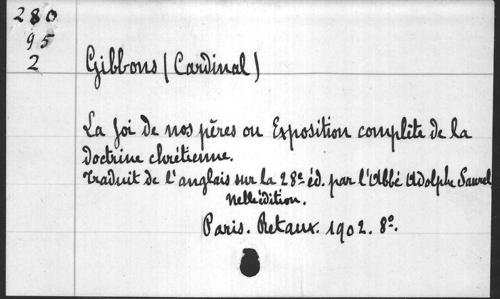 280
95
2
Gibbons (Cardinal)
La foi de nos pères ou Exposition complète de la
doctrine chrétienne.
Traduit de l'anglais sur la 28e éd. par l'Abbé Adolphe Saurel
Nelle édition.
Paris. Retaux. 1902. 8o.